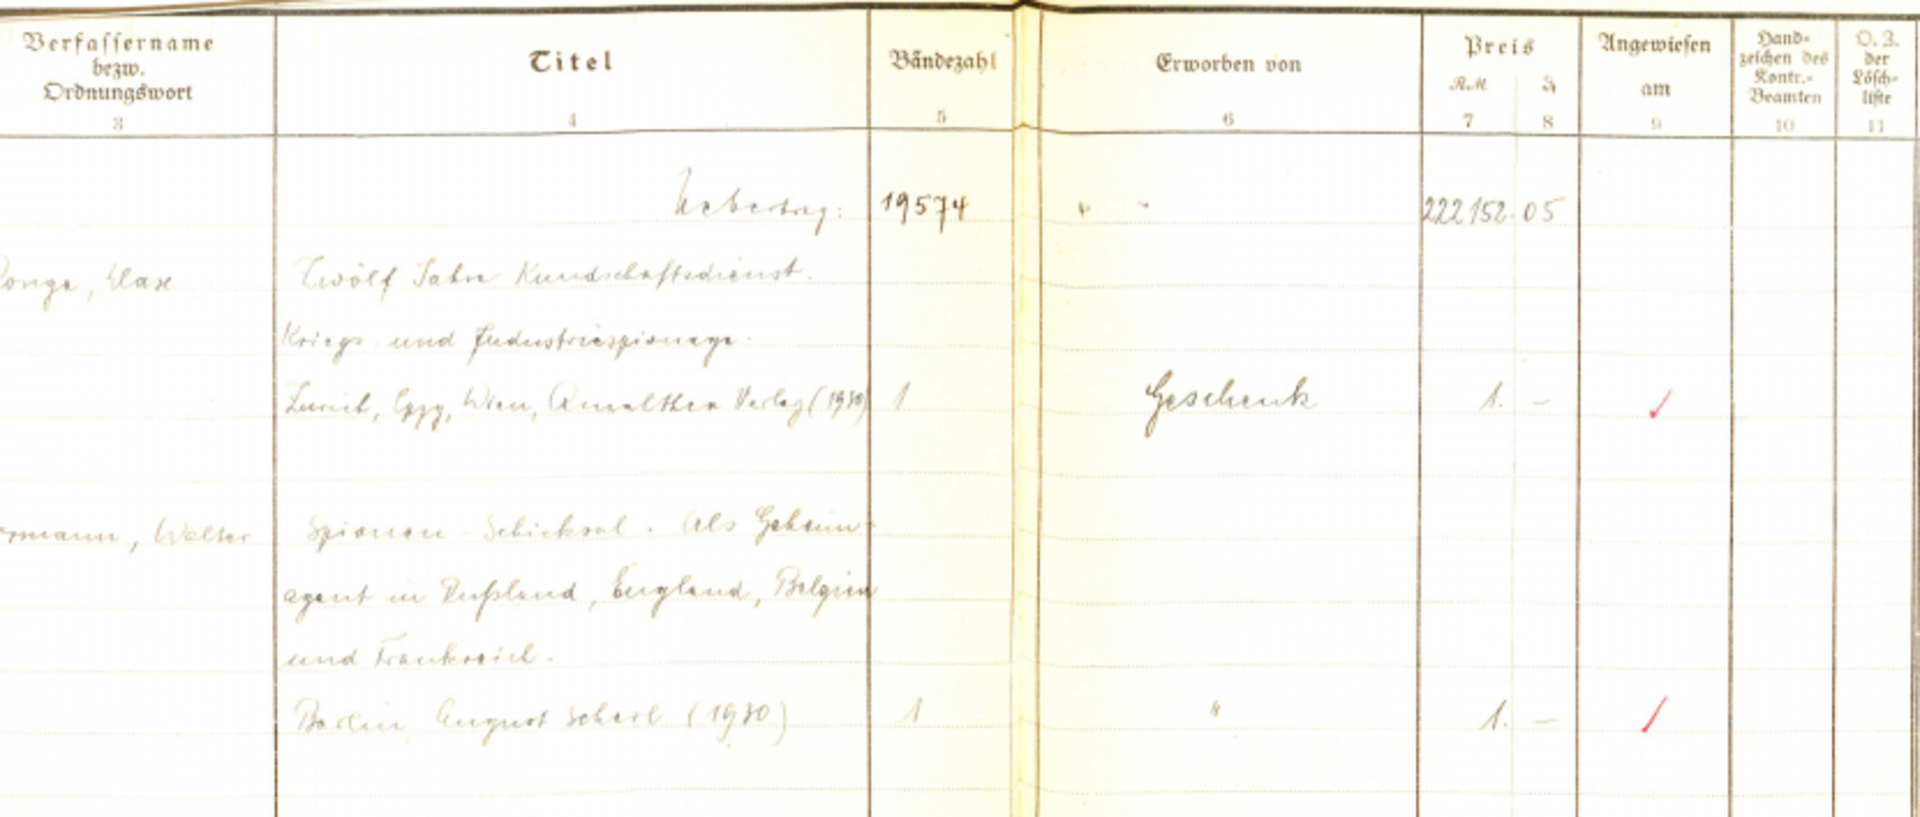 Verfassername bezw. Ordnungswort Titel Bändezahl Erworben von Preis Angewiesen am Hand-zeichen des Kontr.-Beamten O. Z. der Lösch-liste
RM ₰
3 4 5 6 7 8 9 10 11
Uebertrag: 19574 " " 222152.05
Ronge, Max Zwölf Jahre Kundschaftsdienst.
Kriegs und Industriespionage.
Zürich, Lpzg, Wien, Amalthea Verlag (1930) 1 Geschenk 1. –
rmann, Walter Spionen-Schicksal. Als Geheim-
agent in Rußland, England, Belgien
und Frankreich.
Berlin, August Scherl (1930) 1 " 1. –